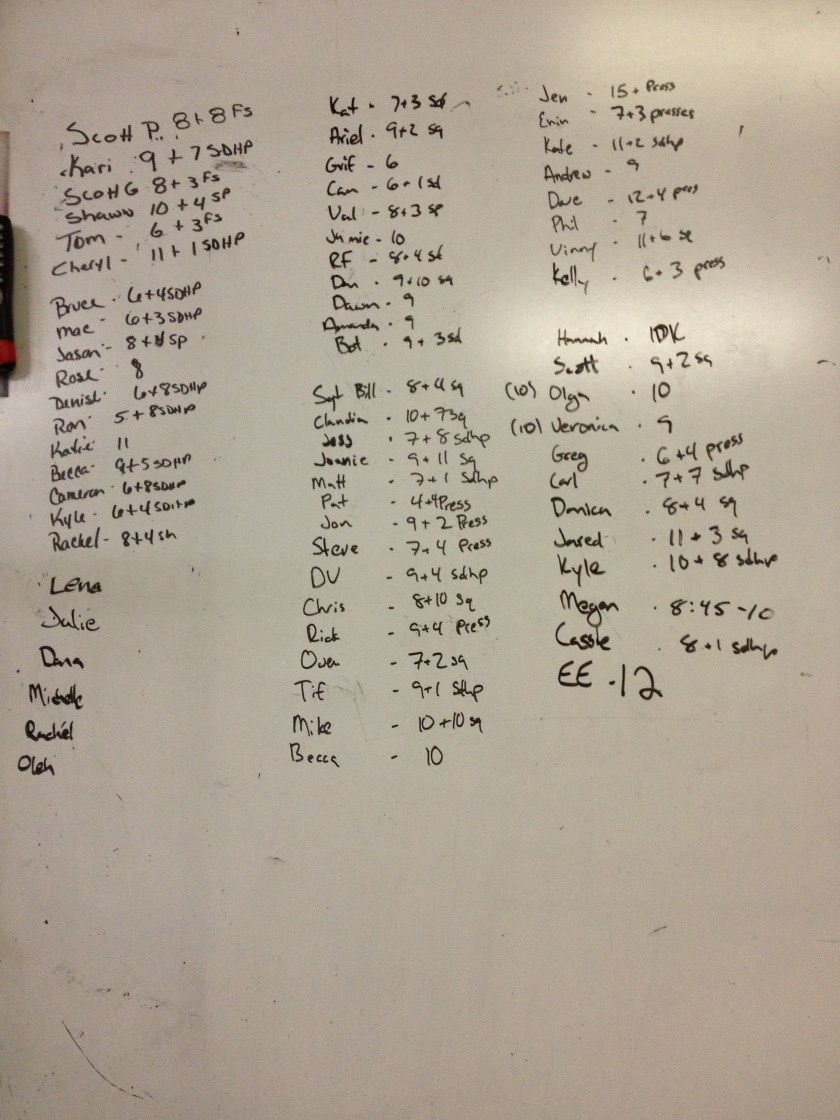 Scott P. 8+8 Fs
Kari 9+7 SDHP
Scott G 8+3 Fs
Shawn 10+4 SP
Tom - 6+3 Fs
Cheryl - 11+1 SDHP
Bruce - 6+4 SDHP
Mae - 6+3 SDHP
Jason - 8+ SP
Rose - 8
Denise - 6+8 SDHP
Ron - 5+8 SDHP
Katie 11
Becca - 9+5 SDHP
Cameron - 6+8 SDHP
Kyle - 6+4 SDHP
Rachel - 8+4 sh
Lena
Julie
Dana
Michelle
Rachel
Oleh
Kat - 7+3 Sd
Ariel - 9+2 sq
Grif - 6
Cam - 6+1 sd
Val - 8+3 sp
Jamie - 10
RF - 8+4 sd
Dan - 9+10 sq
Dawn - 9
Amanda - 9
Bot - 9+3 sd
Sgt Bill - 8+4 sq
Claudia - 10+7 sq
Jess - 7+8 sdhp
Joanie - 9+11 sq
Matt - 7+1 Sdhp
Pat - 4+4 Press
Jon - 9+2 Press
Steve - 7+4 Press
DV - 9+4 sdhp
Chris - 8+10 sq
Rick - 9+4 press
Owen - 7+2 sq
Tif - 9+1 Sdhp
Mike - 10+10 sq
Becca - 10
Jen - 15+ Press
Erin - 7+3 presses
Kate - 11+2 sdhp
Andrew - 9
Dave - 12+4 press
Phil - 7
Vinny - 11+6 sq
Kelly - 6+3 press
Hannah - IDK
Scott - 9+2 sq
(10) Olga - 10
(10) Veronica - 9
Greg - 6+4 press
Carl - 7+7 Sdhp
Danica - 8+4 sq
Jared - 11+3 sq
Kyle - 10+8 sdhp
Megan - 8:45 -10
Cassie - 8+1 sdhp
EE - 12